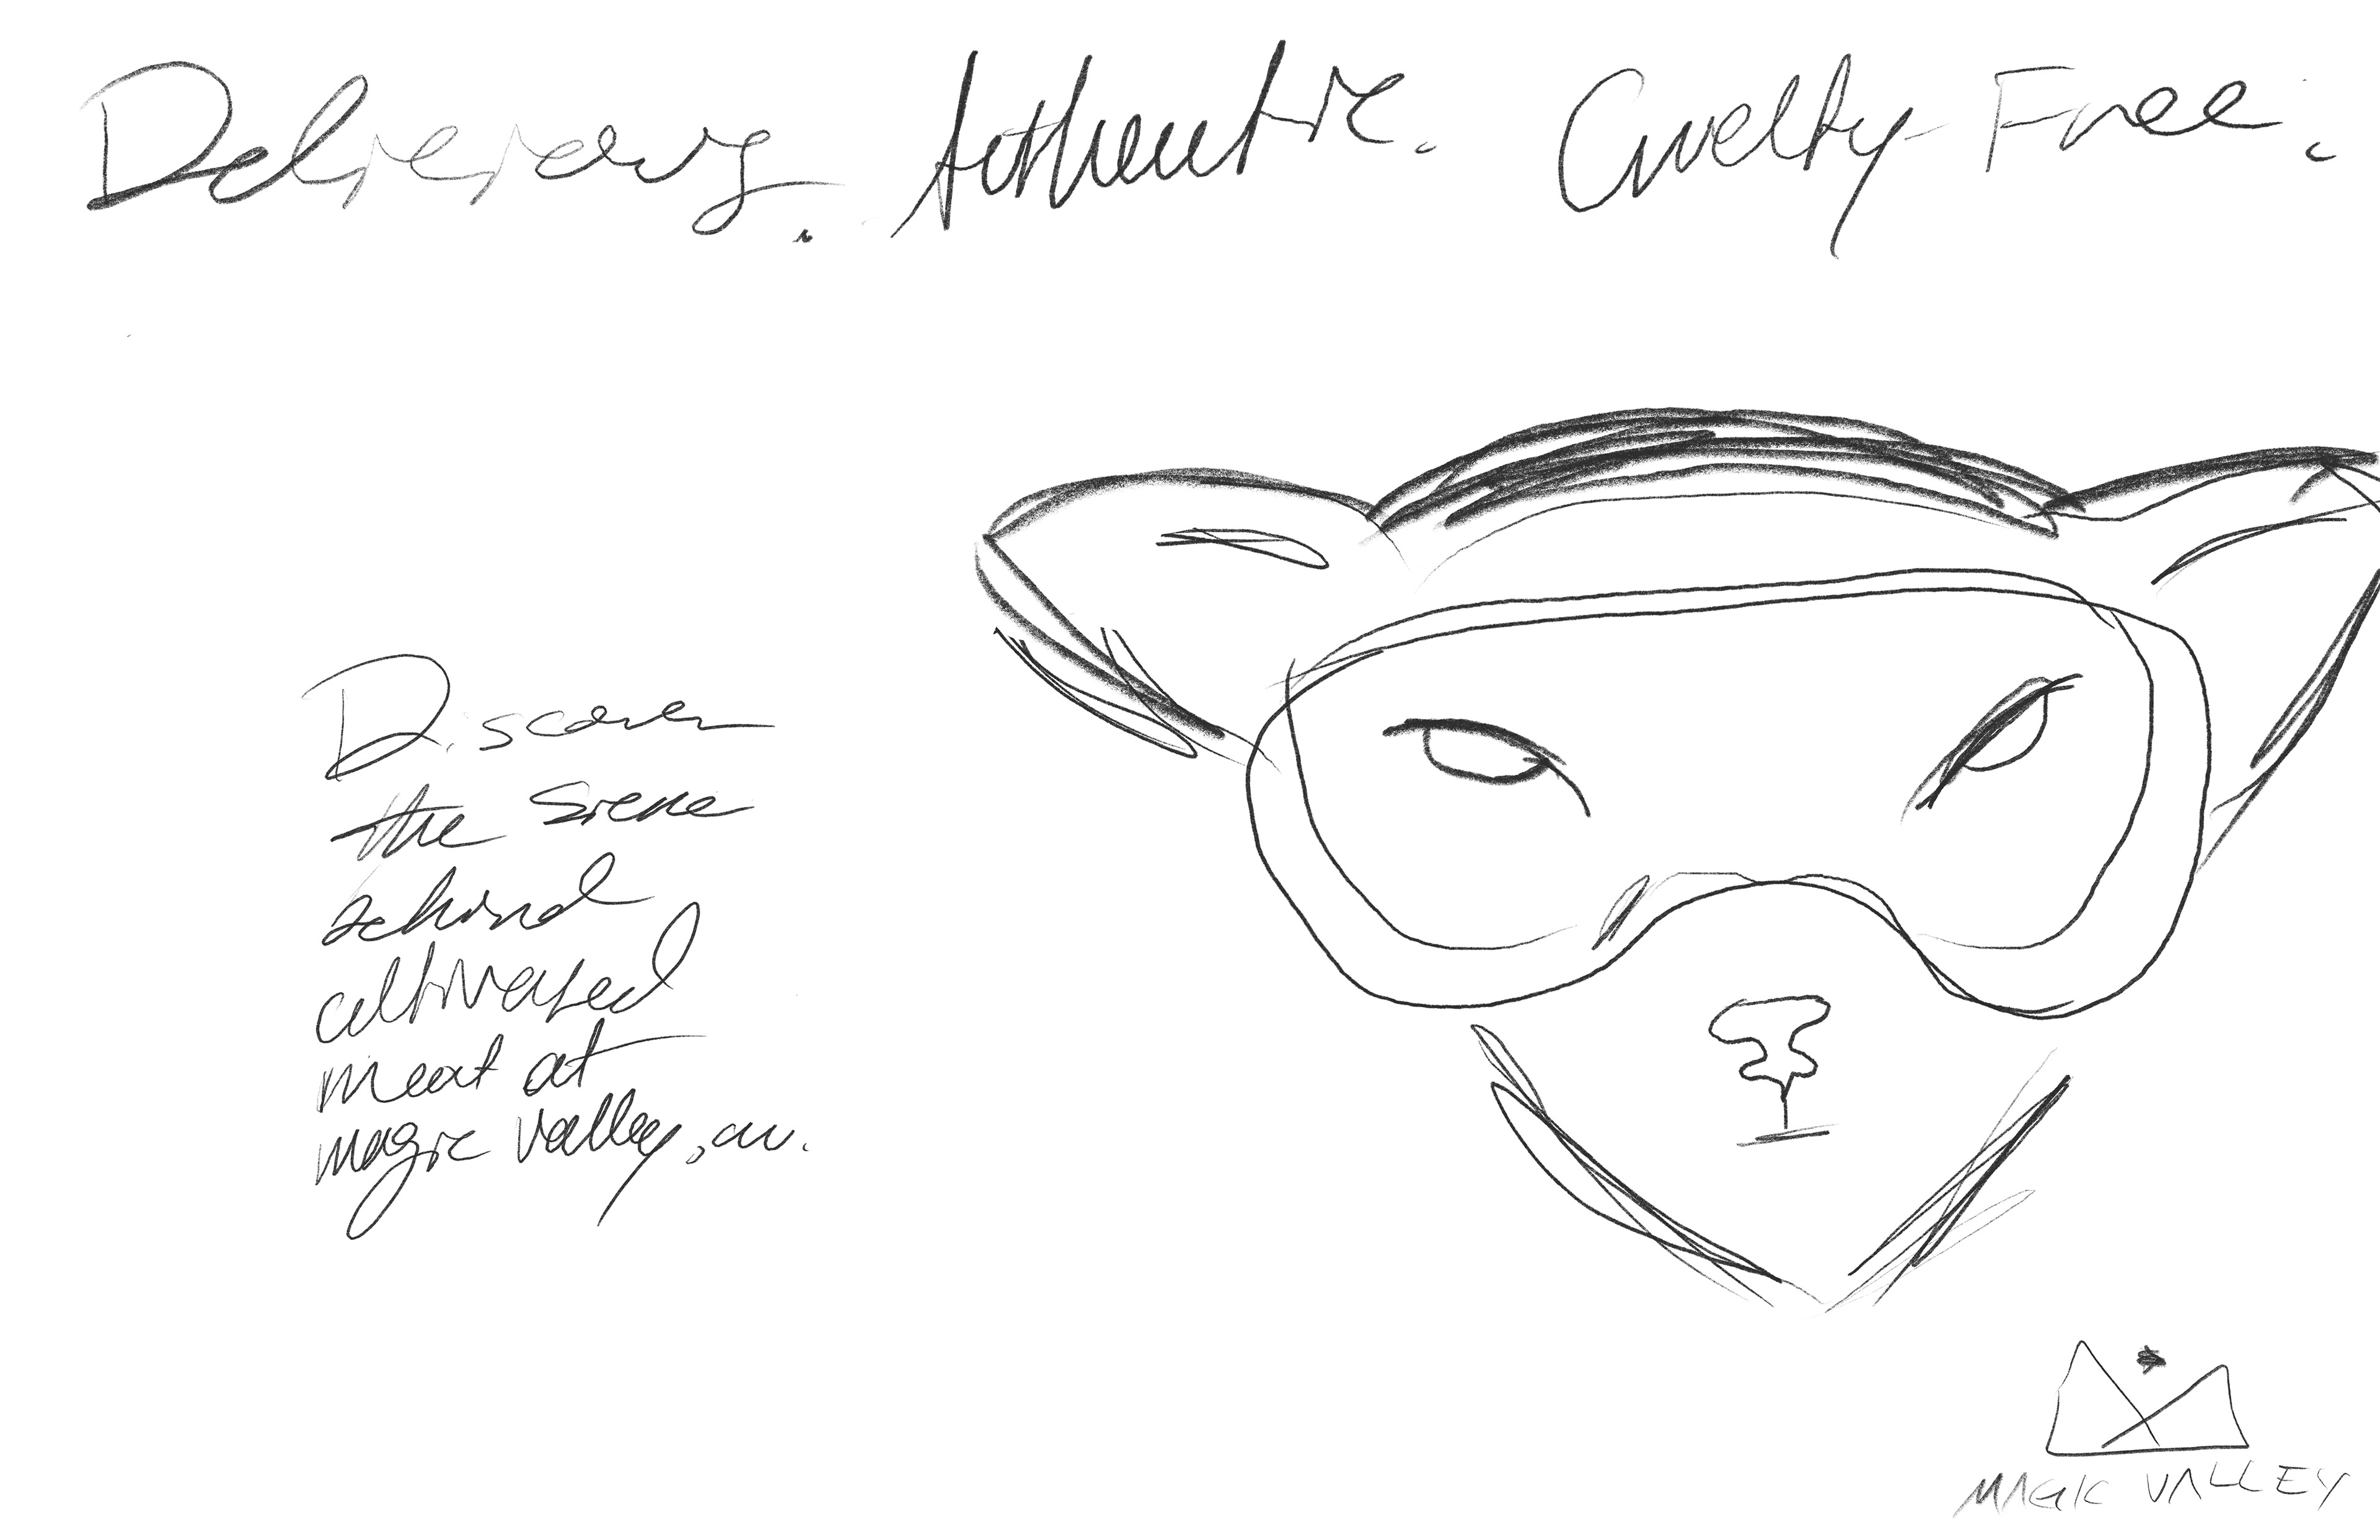 Delicious. Authentic. Cruelty-Free.
Discover
the siene
behind
cultivated
meat at
magic valley, au.
MAGIC VALLEY